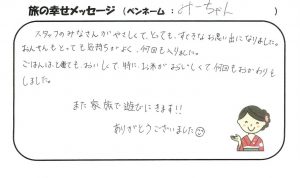 旅の幸せメッセージ（ペンネーム：みーちゃん）
スタッフのみなさんがやさしくて、とても、すてきなお思い出になりました。
おんせんもとっても気持ちがよく、何回も入りました。
ごはんは、とても、おいしくて、特に、お米がおいしくて何回もおかわり
もしました。
また家族で遊びにきます!!
ありがとうございました☺